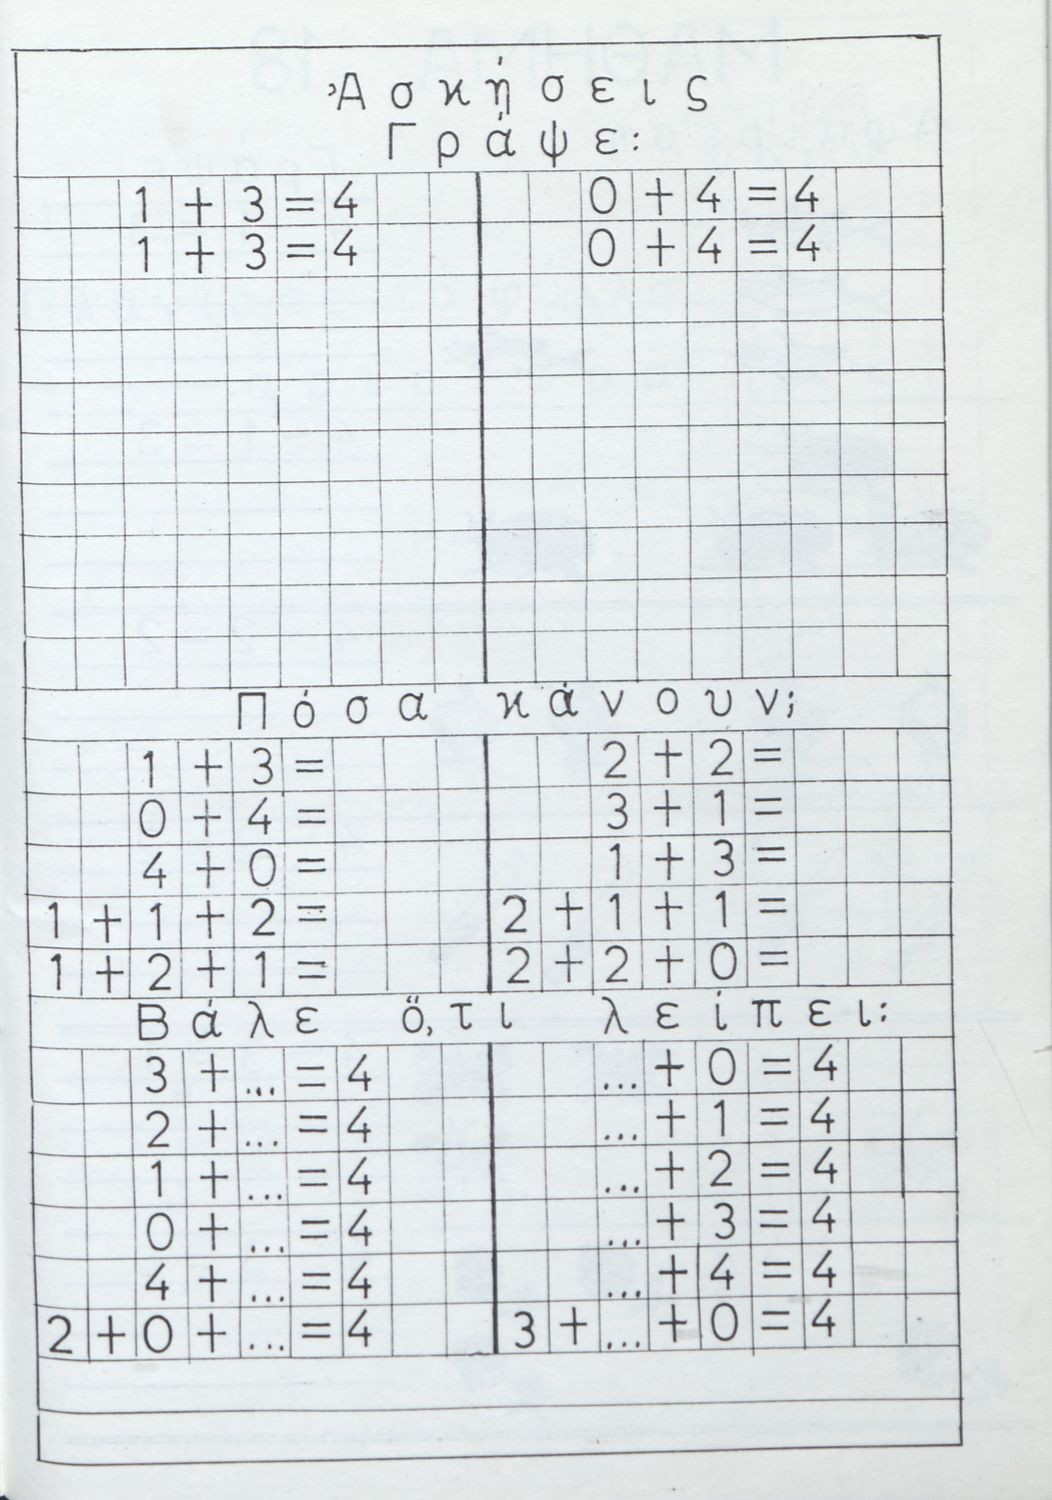 Ἀσκήσεις
Γράψε:
1 + 3 = 4 0 + 4 = 4
1 + 3 = 4 0 + 4 = 4
Πόσα κάνουν;
1 + 3 = 2 + 2 =
0 + 4 = 3 + 1 =
4 + 0 = 1 + 3 =
1 + 1 + 2 = 2 + 1 + 1 =
1 + 2 + 1 = 2 + 2 + 0 =
Βάλε ὅ,τι λείπει:
3 + ... = 4 ... + 0 = 4
2 + ... = 4 ... + 1 = 4
1 + ... = 4 ... + 2 = 4
0 + ... = 4 ... + 3 = 4
4 + ... = 4 ... + 4 = 4
2 + 0 + ... = 4 3 + ... + 0 = 4